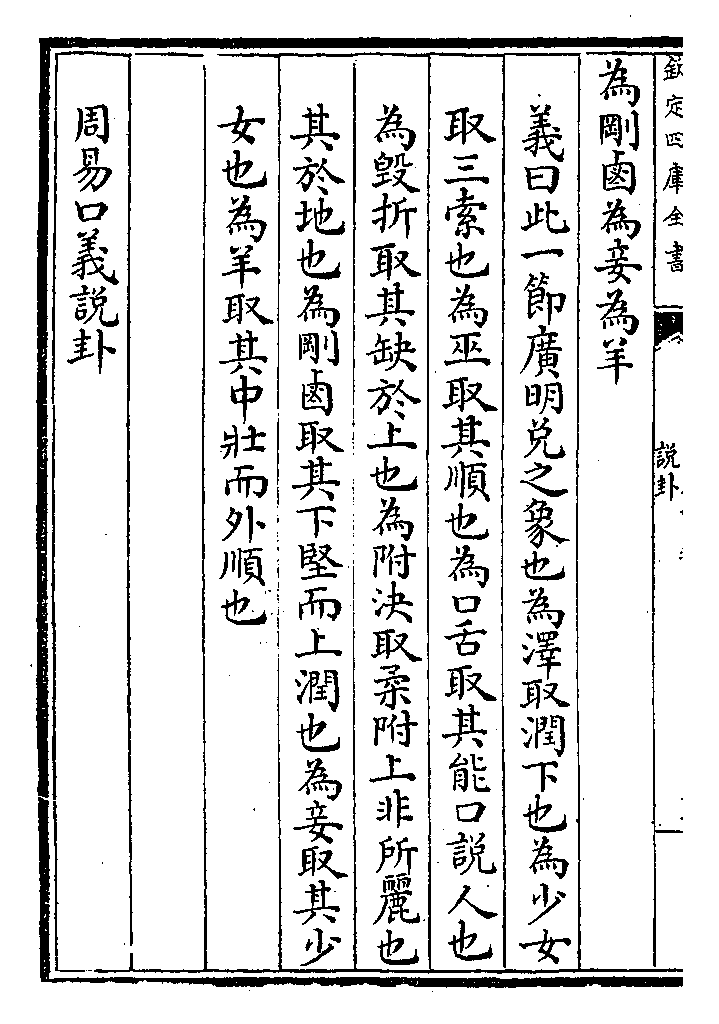 欽定四庫全書
說卦
為剛鹵為妾為羊
義曰此一節廣明兑之象也為澤取潤下也為少女
取三索也為巫取其順也為口舌取其能口說人也
為毀折取其缺於上也為附決取柔附上非所麗也
其於地也為剛鹵取其下堅而上潤也為妾取其少
女也為羊取其中壯而外順也
周易口義說卦